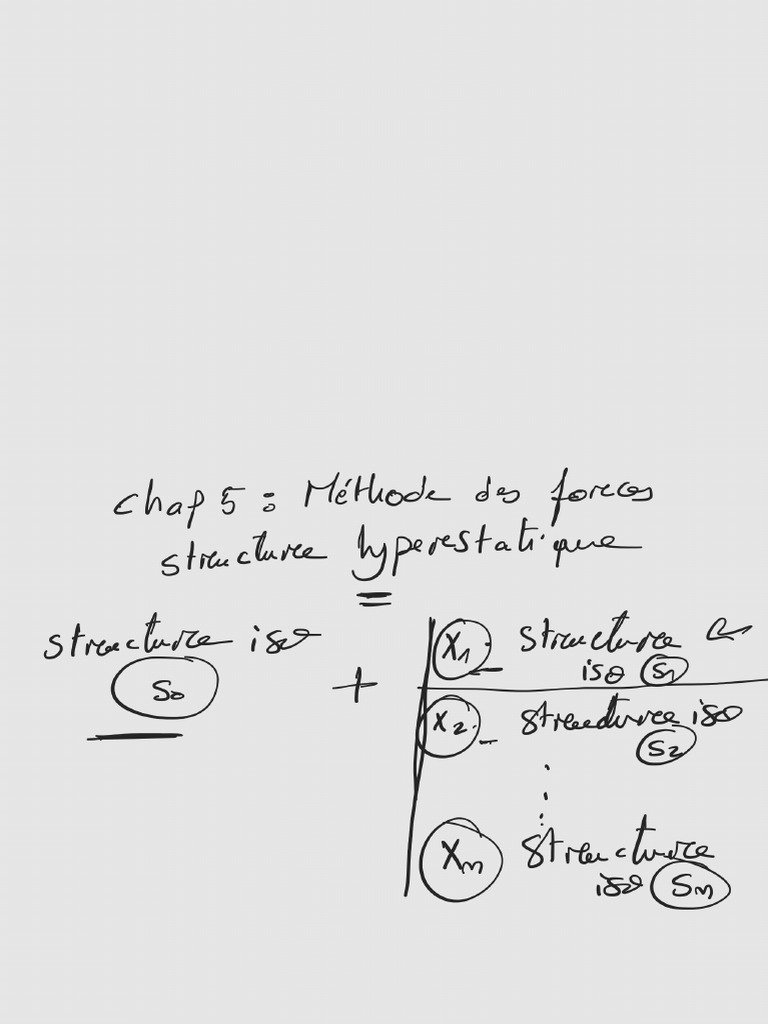 Chap 5 : Méthode des forces
structure hyperestatique
=
structure iso
S₀
+
X₁ . structure
iso S₁
X₂ . structure iso
S₂
⋮
Xₘ structure
iso Sₘ